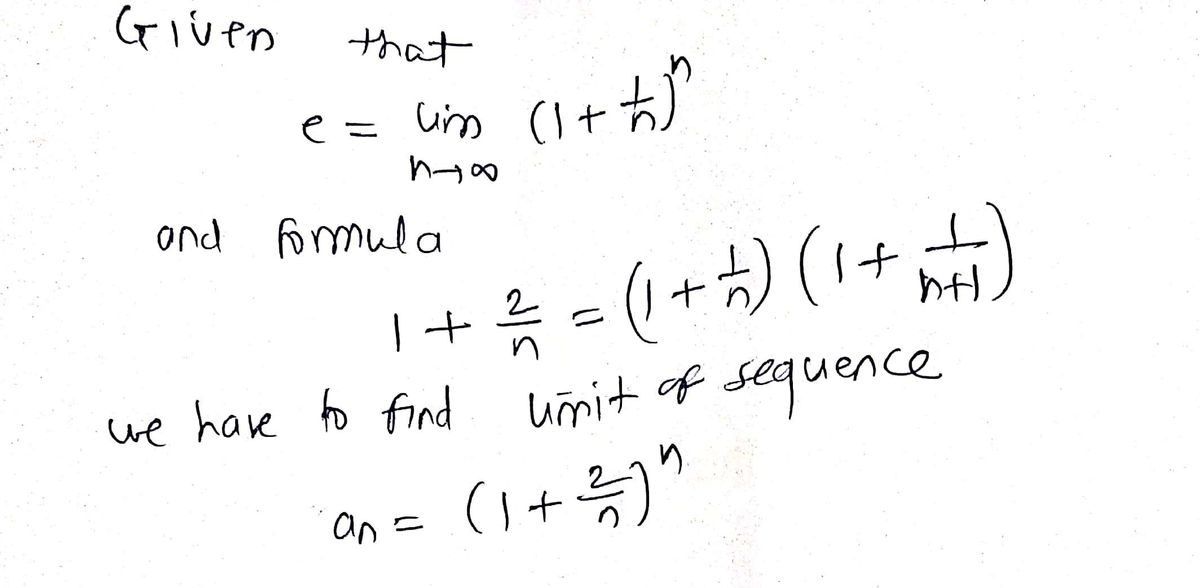 Given that
e = lim (1 + 1/n)^n
n→∞
and formula
1 + 2/n = (1 + 1/n) (1 + 1/(n+1))
we have to find limit of sequence
an = (1 + 2/n)^n